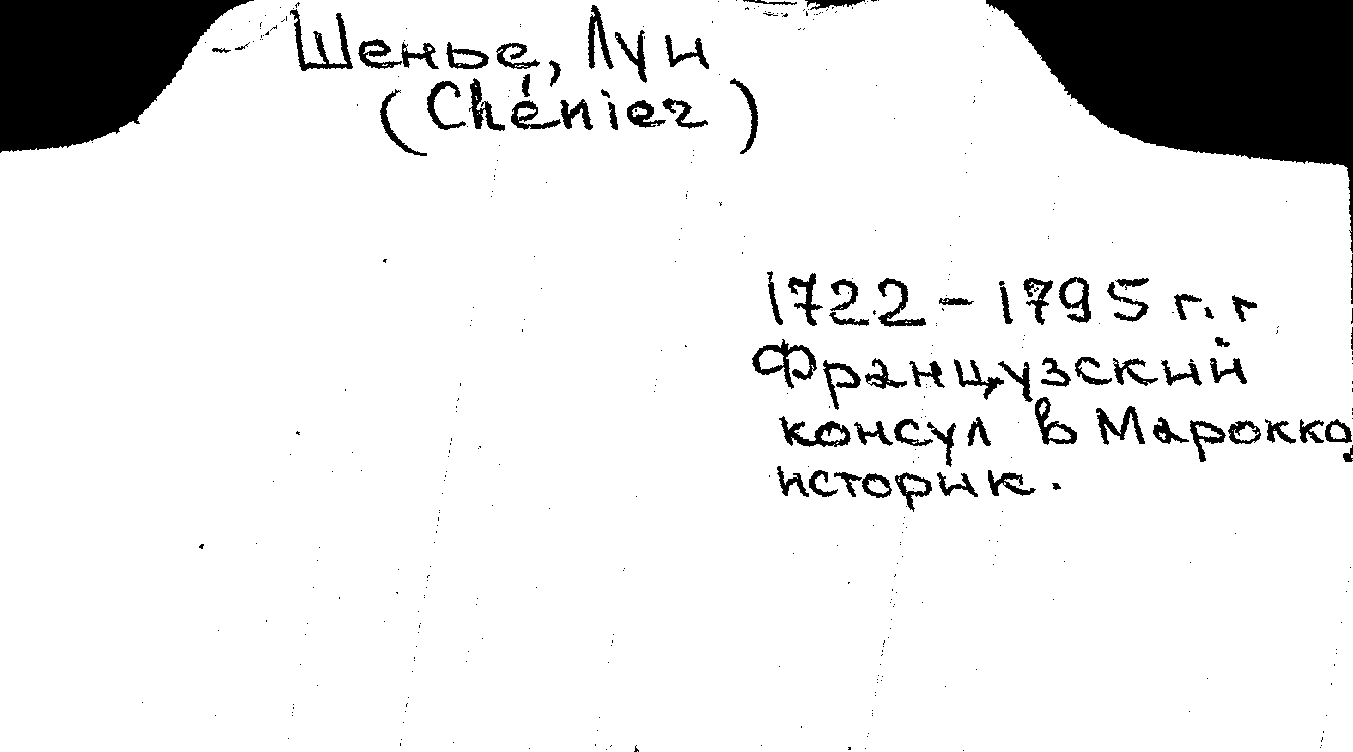 Шенье, Луи
(Chénier)
1722 – 1795 г.г
Французский
консул в Марокко,
историк.